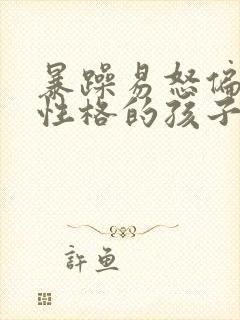 暴躁易怒偏
性格的孩子
許鱼